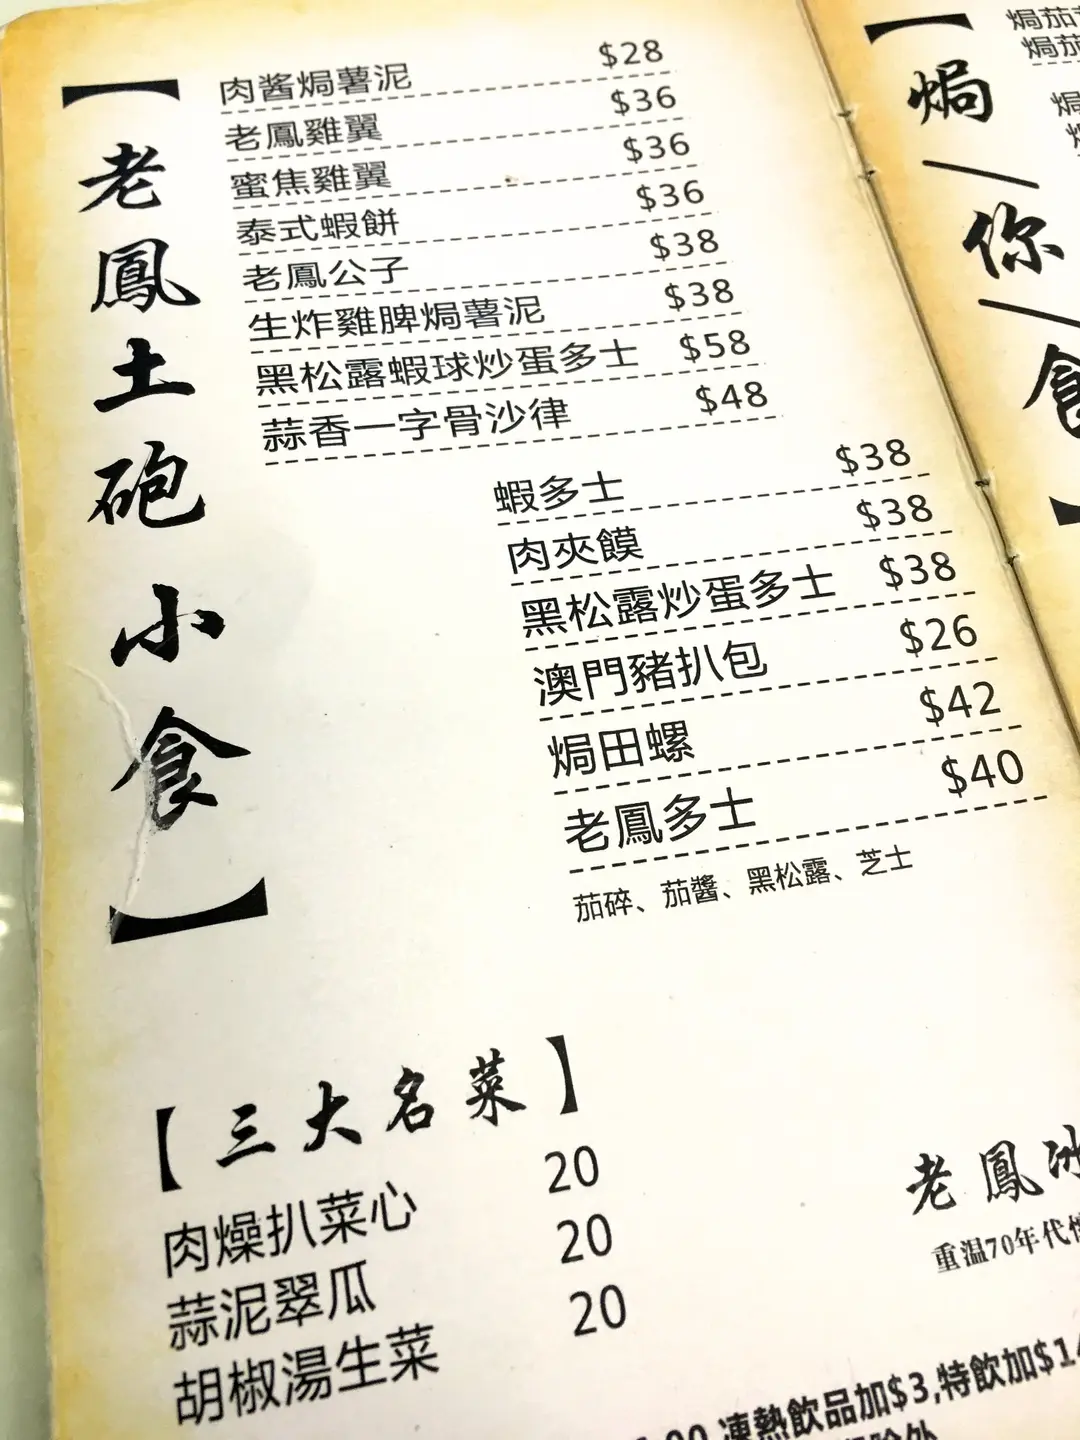 【老鳳土砲小食】
肉酱焗薯泥 $28
老鳳雞翼 $36
蜜焦雞翼 $36
泰式蝦餅 $36
老鳳公子 $38
生炸雞脾焗薯泥 $38
黑松露蝦球炒蛋多士 $58
蒜香一字骨沙律 $48
蝦多士 $38
肉夾饃 $38
黑松露炒蛋多士 $38
澳門豬扒包 $26
焗田螺 $42
老鳳多士 $40
茄碎、茄醬、黑松露、芝士
【三大名菜】
肉燥扒菜心 20
蒜泥翠瓜 20
胡椒湯生菜 20
老鳳冰
重温70年代
凍熱飲品加$3,特飲加$14
【焗/你/食】
焗茄
焗茄
焗